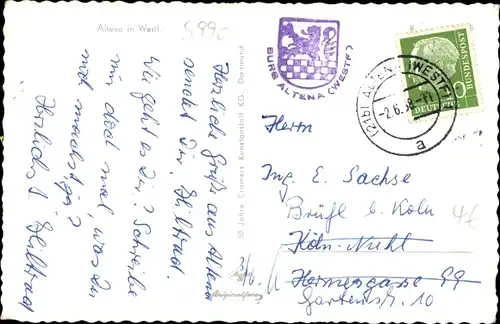 Altena in Westf.
599c
Herzliche Grüße aus Altena
sendet Dir
Wie geht es Dir? Schreibe
mir doch mal, was Du
noch machst
Herzlichst
50 Jahre Cramers Kunstanstalt KG Dortmund
BURG ALTENA (WESTF)
(21b) ALTENA (WESTF)
-2.6.58
a
DEUTSCHE BUNDESPOST
10
Herrn
Ing. E. Sachse
Brühl b. Köln
Köln-
Hermesgasse 99
Gartenstr. 10
4€
Originalfoto